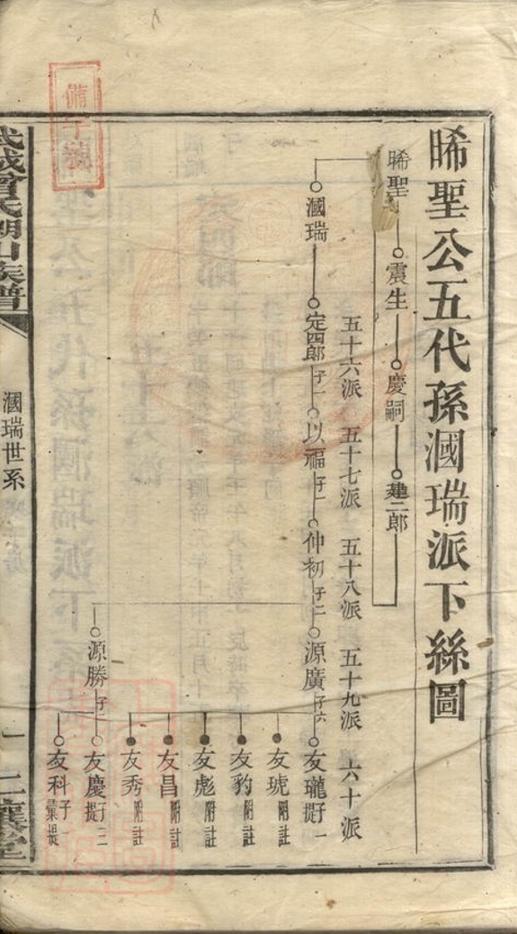 晞聖公五代孫漍瑞派下絲圖
晞聖 震生 慶嗣 建二郎
五十六派 五十七派 五十八派 五十九派 六十派
漍瑞 定四郎子一 以福子一 仲初子二 源廣子六 友瓏提子一
友琥附註
友豹附註
友彪附註
友昌附註
友秀附註
源勝子二 友慶提子二
友科子一彙提
武城曾氏湖山族譜
漍瑞世系
備子號